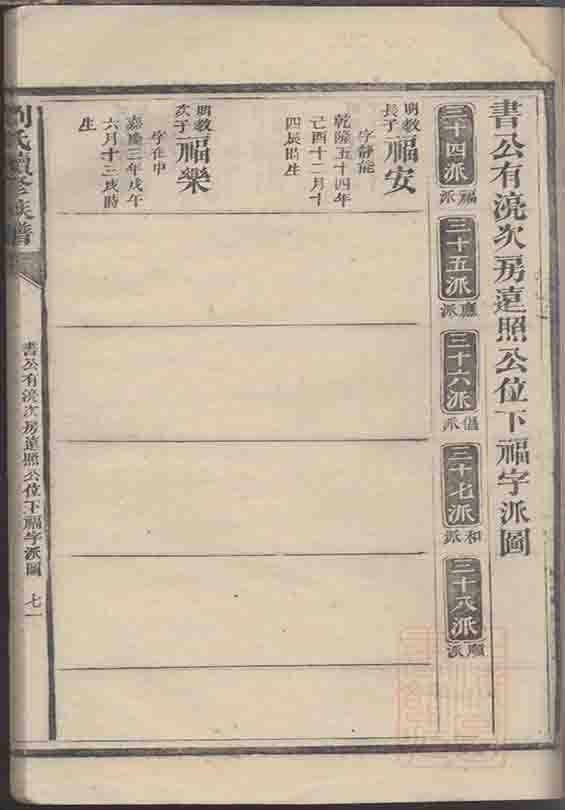 書公有澆次房遠照公位下福字派圖
三十四派
福派
三十五派
應派
三十六派
派
三十七派
和派
三十八派
派
明教
長子
福安
字靜能
乾隆五十四年
己酉十二月十
四辰時生
明教
次子
福樂
字在中
嘉慶三年戊午
六月十三戌時
生
劉氏續修族譜
書公有澆次房遠照公位下福字派圖
七一